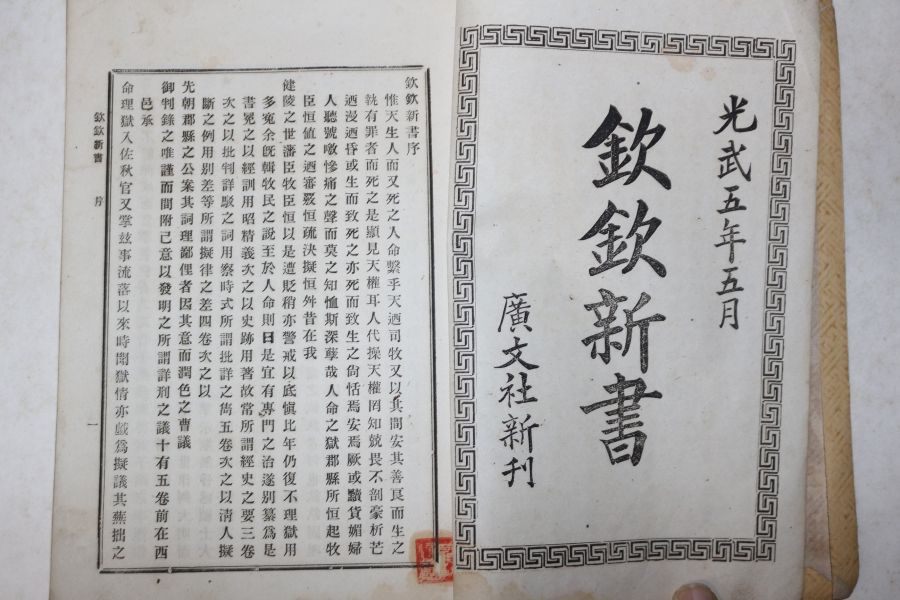 光武五年五月
欽欽新書
廣文社新刊
欽欽新書序
惟天生人而又死之人命繫乎天迺司牧又以其間安其善良而生之
執有罪者而死之是顯見天權耳人代操天權罔知兢畏不剖豪析芒
迺漫迺昏或生而致死之亦死而致生之尙恬焉安焉厥或黷貨媚婦
人聽號噭慘痛之聲而莫之知恤斯深孽哉人命之獄郡縣所恒起牧
臣恒值之迺審覈恒疏決擬恒舛昔在我
健陵之世藩臣牧臣恒以是遭貶稍亦警戒以底愼比年仍復不理獄用
多寃余旣輯牧民之說至於人命則曰是宜有專門之治遂別纂爲是
書冕之以經訓用昭精義次之以史跡用著故常所謂經史之要三卷
次之以批判詳駁之詞用察時式所謂批詳之雋五卷次之以淸人擬
斷之例用別差等所謂擬律之差四卷次之以
先朝郡縣之公案其詞理鄙俚者因其意而潤色之曹議
御判錄之唯謹而間附己意以發明之所謂詳刑之議十有五卷前在西
邑承
命理獄入佐秋官又掌玆事流落以來時聞獄情亦戱爲擬議其蕪拙之
欽欽新書 序 一